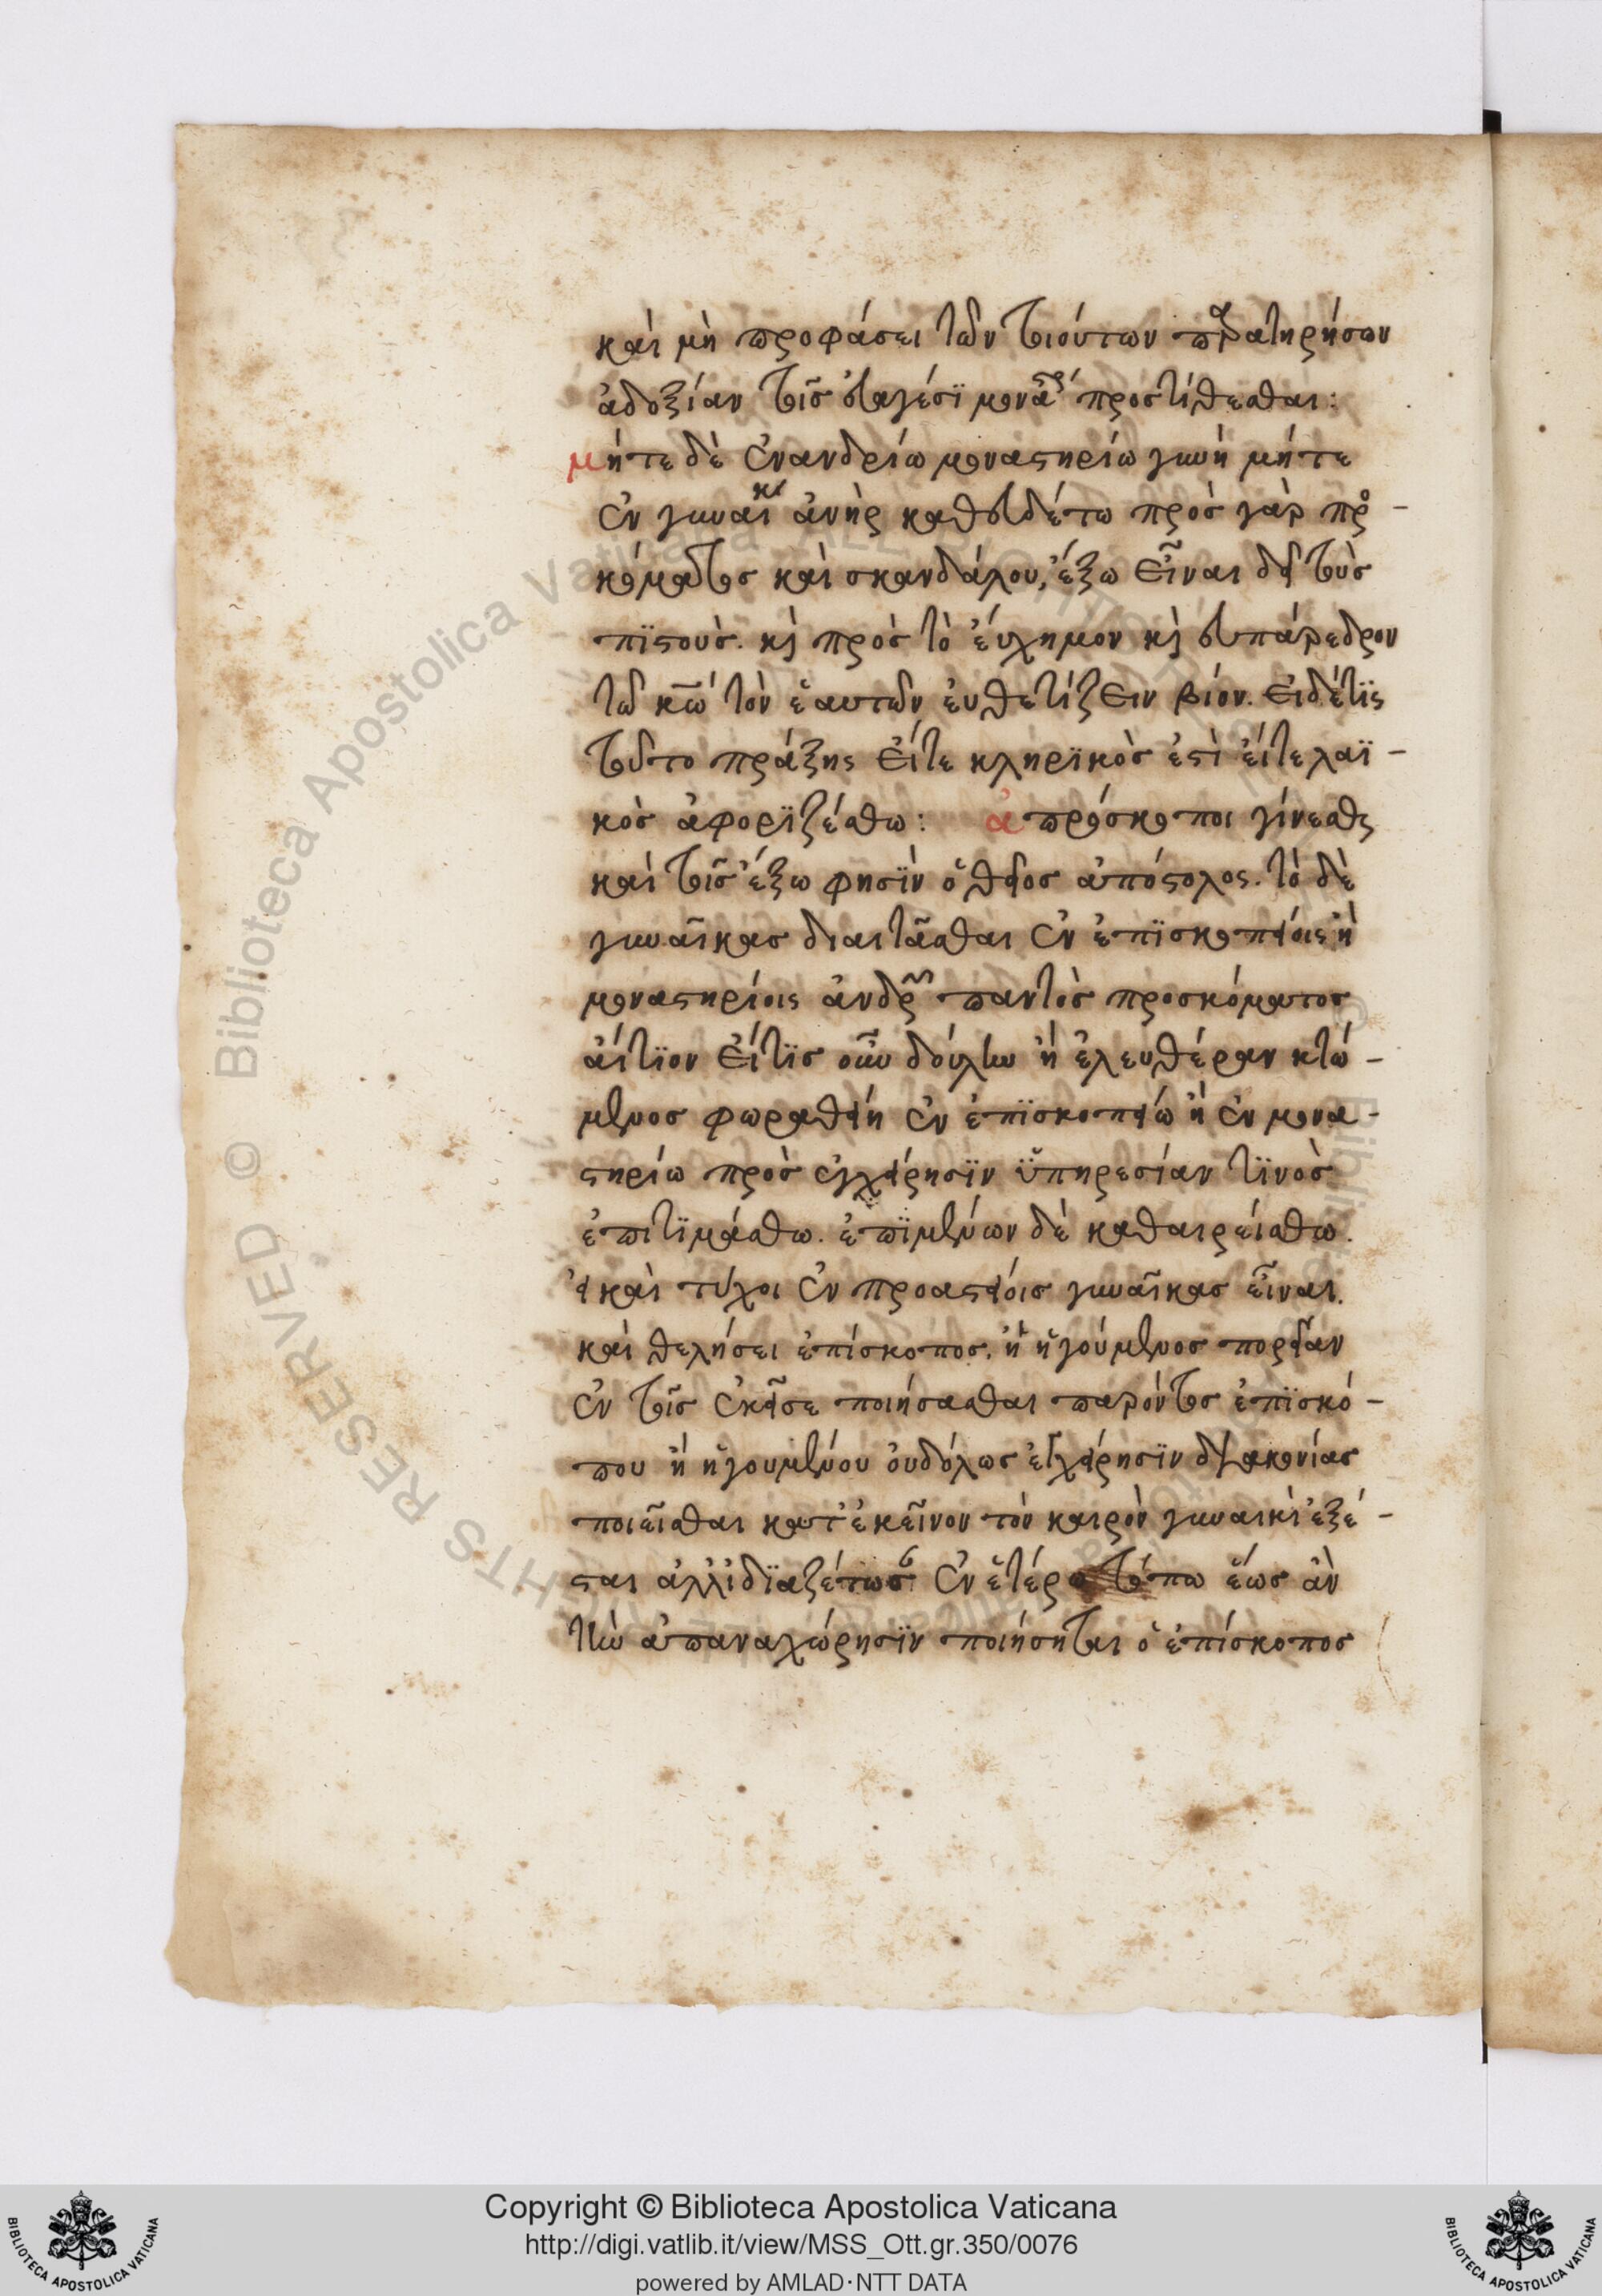 καὶ μὴ προφάσει τῶν τοιούτων παρατηρήσεων
ἀδοξίαν τοῖς εὐαγέσϊ μοναστ προστίθεσθαι:
μήτε δὲ ἐν ανδρίω μοναστηρίω γυνὴ μήτε
ἐν γυναικ ἀνὴρ καθευδέτω πρὸς γὰρ προ-
κόματος καὶ σκανδάλου, ἔξω εἶναι δεῖ τοὺς
πϊστοὺς. κὶ πρὸς τὸ ἔυσχημον κὶ ευπάρεδρον
τῶ κῶ τὸν ἑαυτῶν ἐυθετίζειν βίον. εἰ δέ τϊς
τοῦτο πράξης εἴτε κληρϊκὸς ἐστὶ εἴτε λαϊ-
κὸς ἀφορϊζέσθω: ἀπρόσκοποι γίνεσθε
καὶ τοῖς ἔξω φησϊν ὁ θεῖος ἀπόστολος. τὸ δὲ
γυναῖκας διαιτᾶσθαι ἐν ἐπϊσκοπείοις ἢ
μοναστηρίοις ἀνδρῶν παντὸς προσκόματος
ἄιτϊον εἴ τϊς οὖν δούλην ἢ ἐλευθέραν κτώ-
μενος φωραθείη ἐν ἐπϊσκοπείω ἢ ἐν μονα-
στηρίω πρὸς ἐγχείρησϊν ὑπηρεσίαν τϊνὸς
ἐπιτϊμάσθω. ἐπϊμένων δὲ καθαιρείσθω.
εἰ καὶ τύχοι ἐν προαστείοις γυναῖκας εἶναι.
καὶ θελήσει ἐπίσκοπος, ἢ ἡγούμενος πορείαν
ἐν τοῖς ἐκεῖσε ποιήσασθαι παρόντος ἐπϊσκό-
που ἢ ἡγουμένου ὀυδόλως ἐγχείρησϊν διακονίας
ποιεῖσθαι κατ ἐκεῖνον τὸν καιρὸν γυναικὶ ἐξέ-
σται ἀλλ ἰδϊαζέτως ἐν ἑτέρω τόπω ἕως ἀν
τὴν ἀπαναχώρησϊν ποιήσηται ὁ ἐπίσκοπος
Copyright © Biblioteca Apostolica Vaticana
http://digi.vatlib.it/view/MSS_Ott.gr.350/0076
powered by AMLAD·NTT DATA